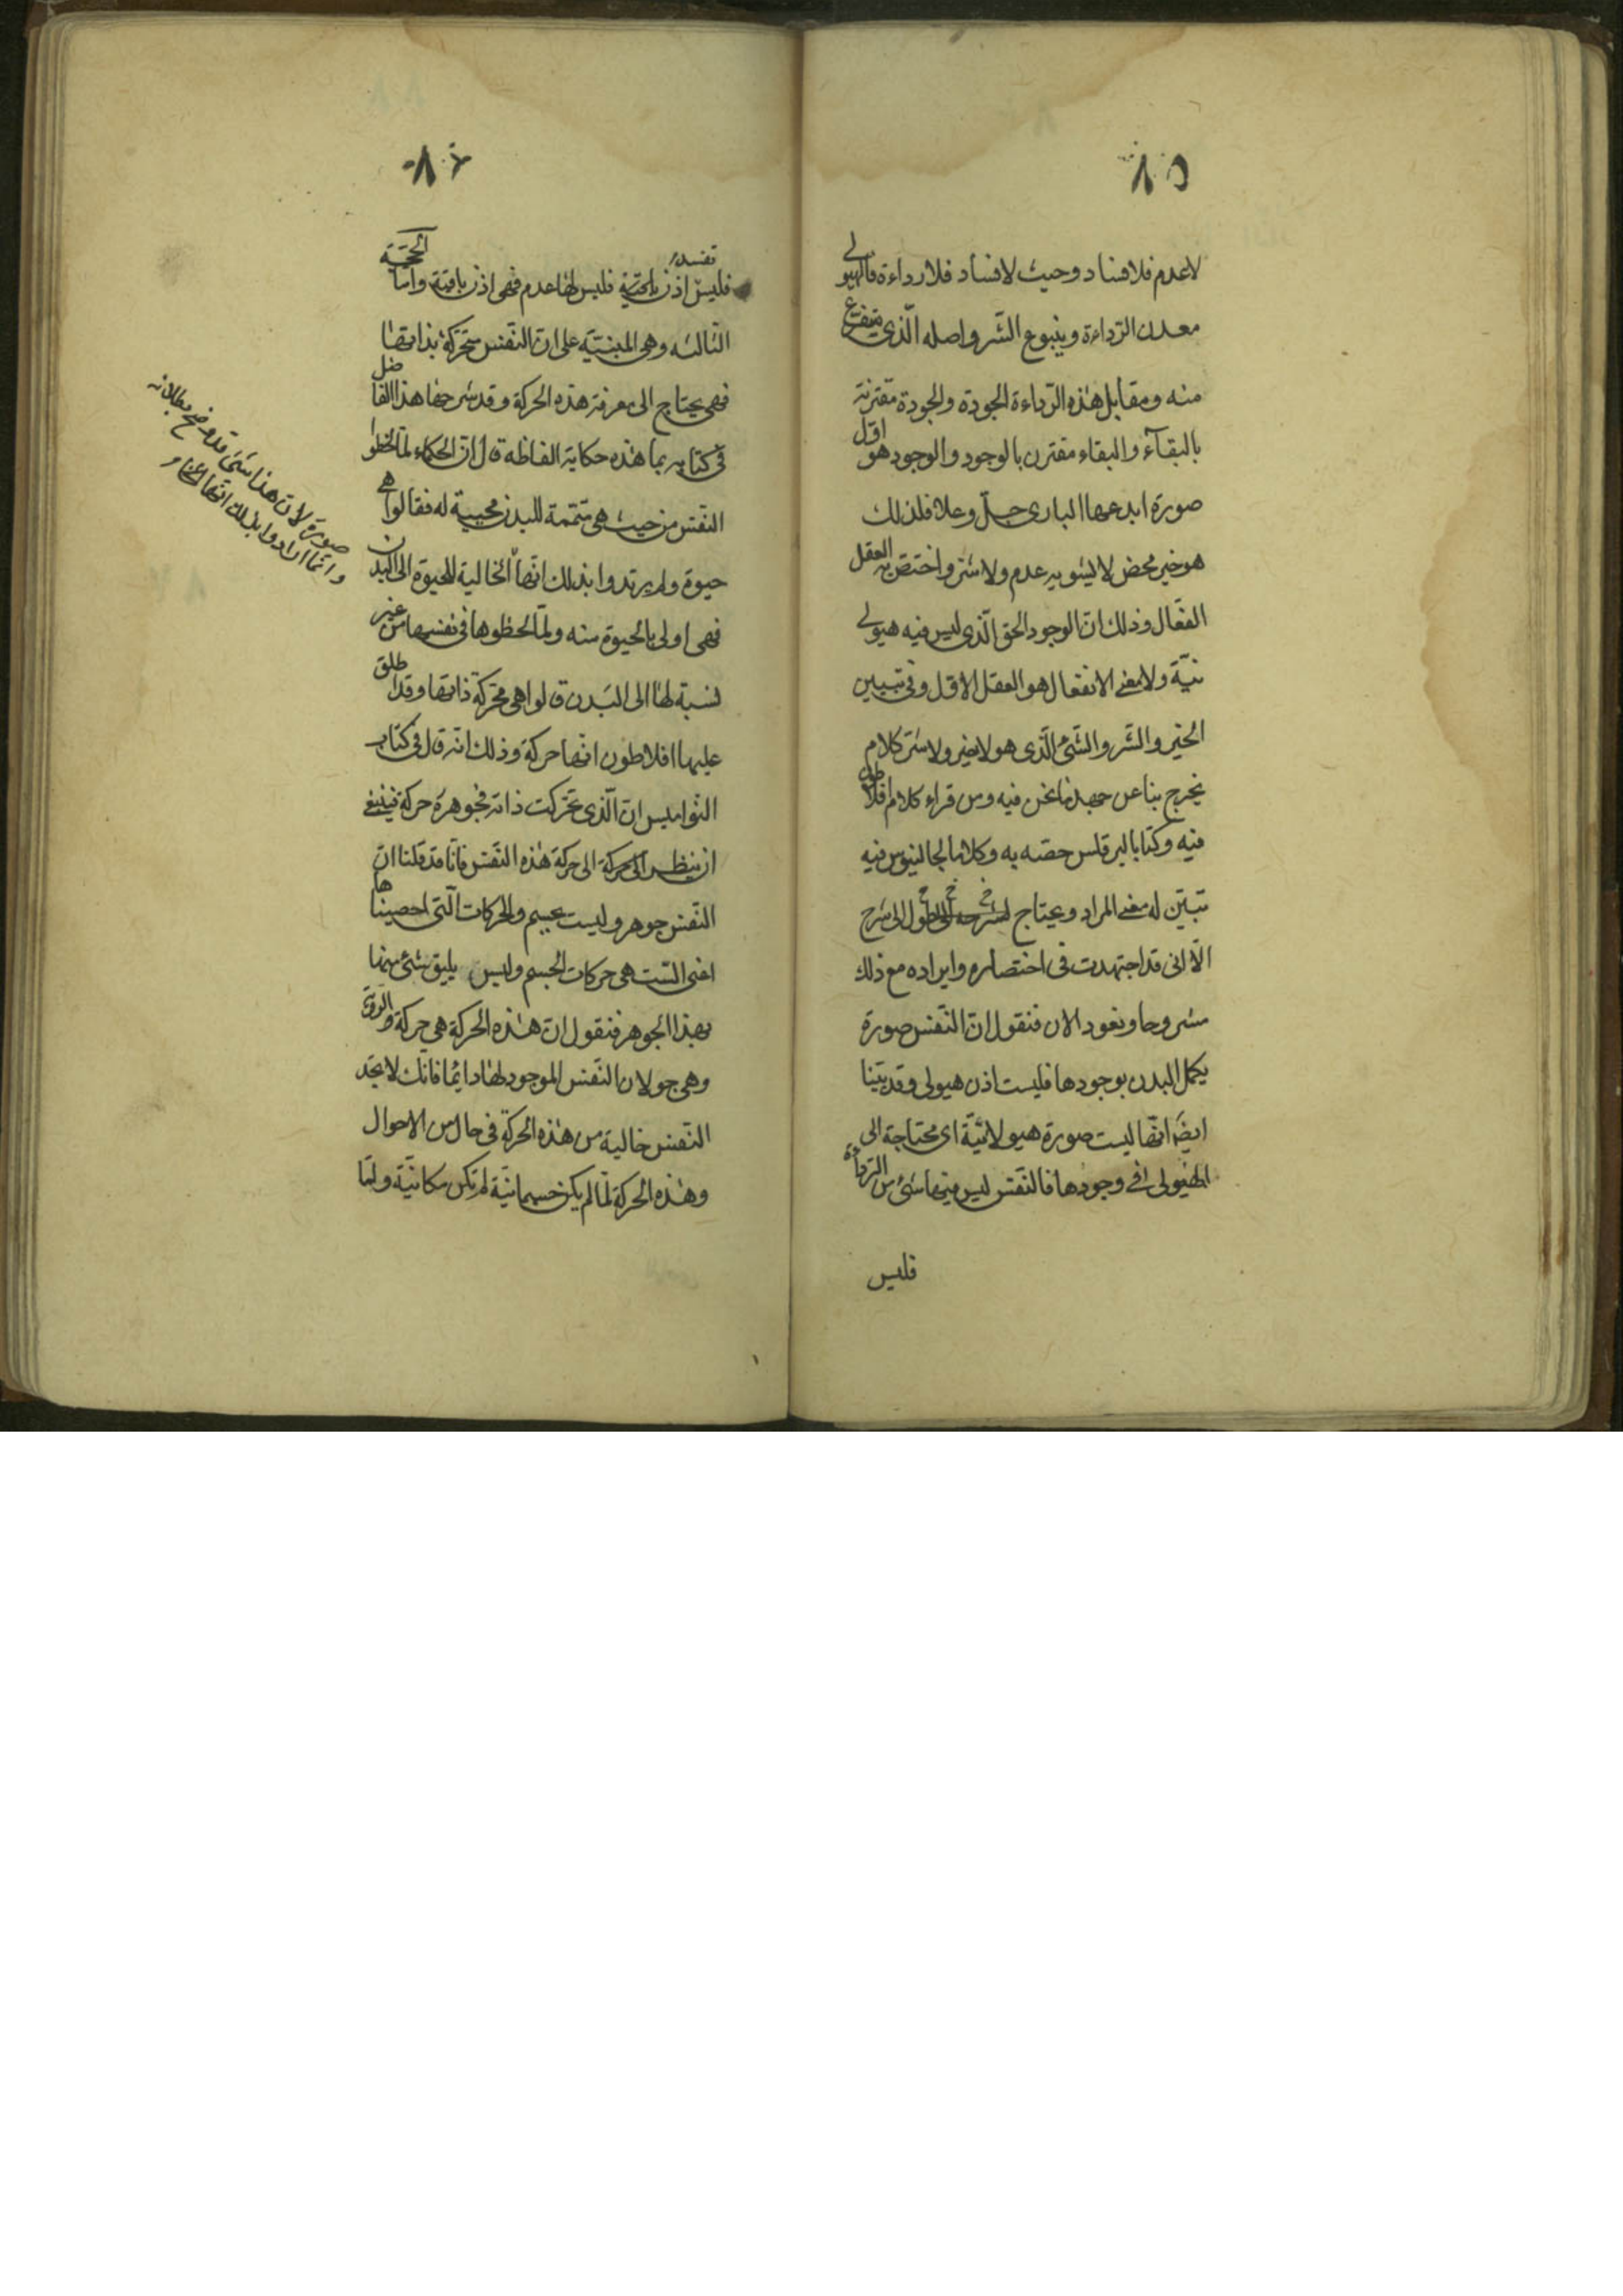 ٨٥
لاعدم فلافساد وحيث لافساد فلارداءة فالهيولى
معدن الرّداءة وينبوع الشّر واصله الّذى يتفرع
منه ومقابل هذه الرّداءة الجودة والجودة مقترنة
بالبقآء والبقاء مقترن بالوجود والوجود هو اوّل
صورة ابدعها البارى جلّ وعلا فلذلك
هو خير محض لايشوبه عدم ولاشر واختص به العقل
الفعّال وذلك انّ الوجود الحق الّذى ليس فيه هيولى
نيّة ولامعنى الانفعال هو العقل الاوّل وفى تبيين
الخير والشّر والشئ الّذى هو لاخير ولاشر كلام
يخرج بنا عن حد مانحن فيه ومن قراء كلام افلاطون
فيه وكتابا لبرقلس خصّه به وكلاما لجالينوس فيه
تبيّن له معنى المراد ويحتاج لشرحه الى طول الى شرح
الّا انى قد اجتهدت فى اختصاره وايراده مع ذلك
مشروحا ونعود الان فنقول انّ النّفس صورة
يكمل البدن بوجودها فليست اذن هيولى وقد بيّنا
ايضًا انّها ليست صورة هيولانيّة اى محتاجة الى
الهيولى فى وجودها فالنّفس ليس فيها شئ من الرّداءة
فليس
٨٦
فليس اذن تفسد فليس لها عدم فهى اذن باقية وامّا الحجّة
الثالثه وهى المبنيّة على انّ النّفس متحرّكة بذاتها
فهى يحتاج الى معرفة هذه الحركة وقد شرحها هذا الفاضل
فى كتابه بما هذه حكاية الفاظه قال انّ الحكماء لمّا لحظوا
النّفس من حيث هى متمّمة للبدن محيية له فقالوا هى
حيوة ولم يرتدوا بذلك انّها الخالية للحيوة الى البدن
فهى اولى بالحيوة منه ولمّا لحظوها فى نفسها من غير
نسبة لها الى البدن قالوا هى محرّكة ذاتها وقد اطلق
عليها افلاطون انّها حركة وذلك انّه قال فى كتاب
النّواميس انّ الّذى تحرّكت ذاته فجوهره حركة فينبغى
ان ينظر الى الحركة الى حركة هذه النّفس فانّا قد قلنا انّ
النّفس جوهر وليست بجسم والحركات الّتى احصيناها
اعنى السّت هى حركات الجسم وليس يليق شئ منها
بهذا الجوهر فنقول انّ هذه الحركة هى حركة والرويّة
وهى جولان النّفس الموجود لها دائما فانّك لا تجد
النّفس خالية من هذه الحركة فى حال من الاحوال
وهذه الحركة لمّا لم يكن جسمانيّة لم تكن مكانيّة ولمّا
صورة لانّ هذا شئ قد وضح بطلانه
وانّما ارادوا بذلك انّها